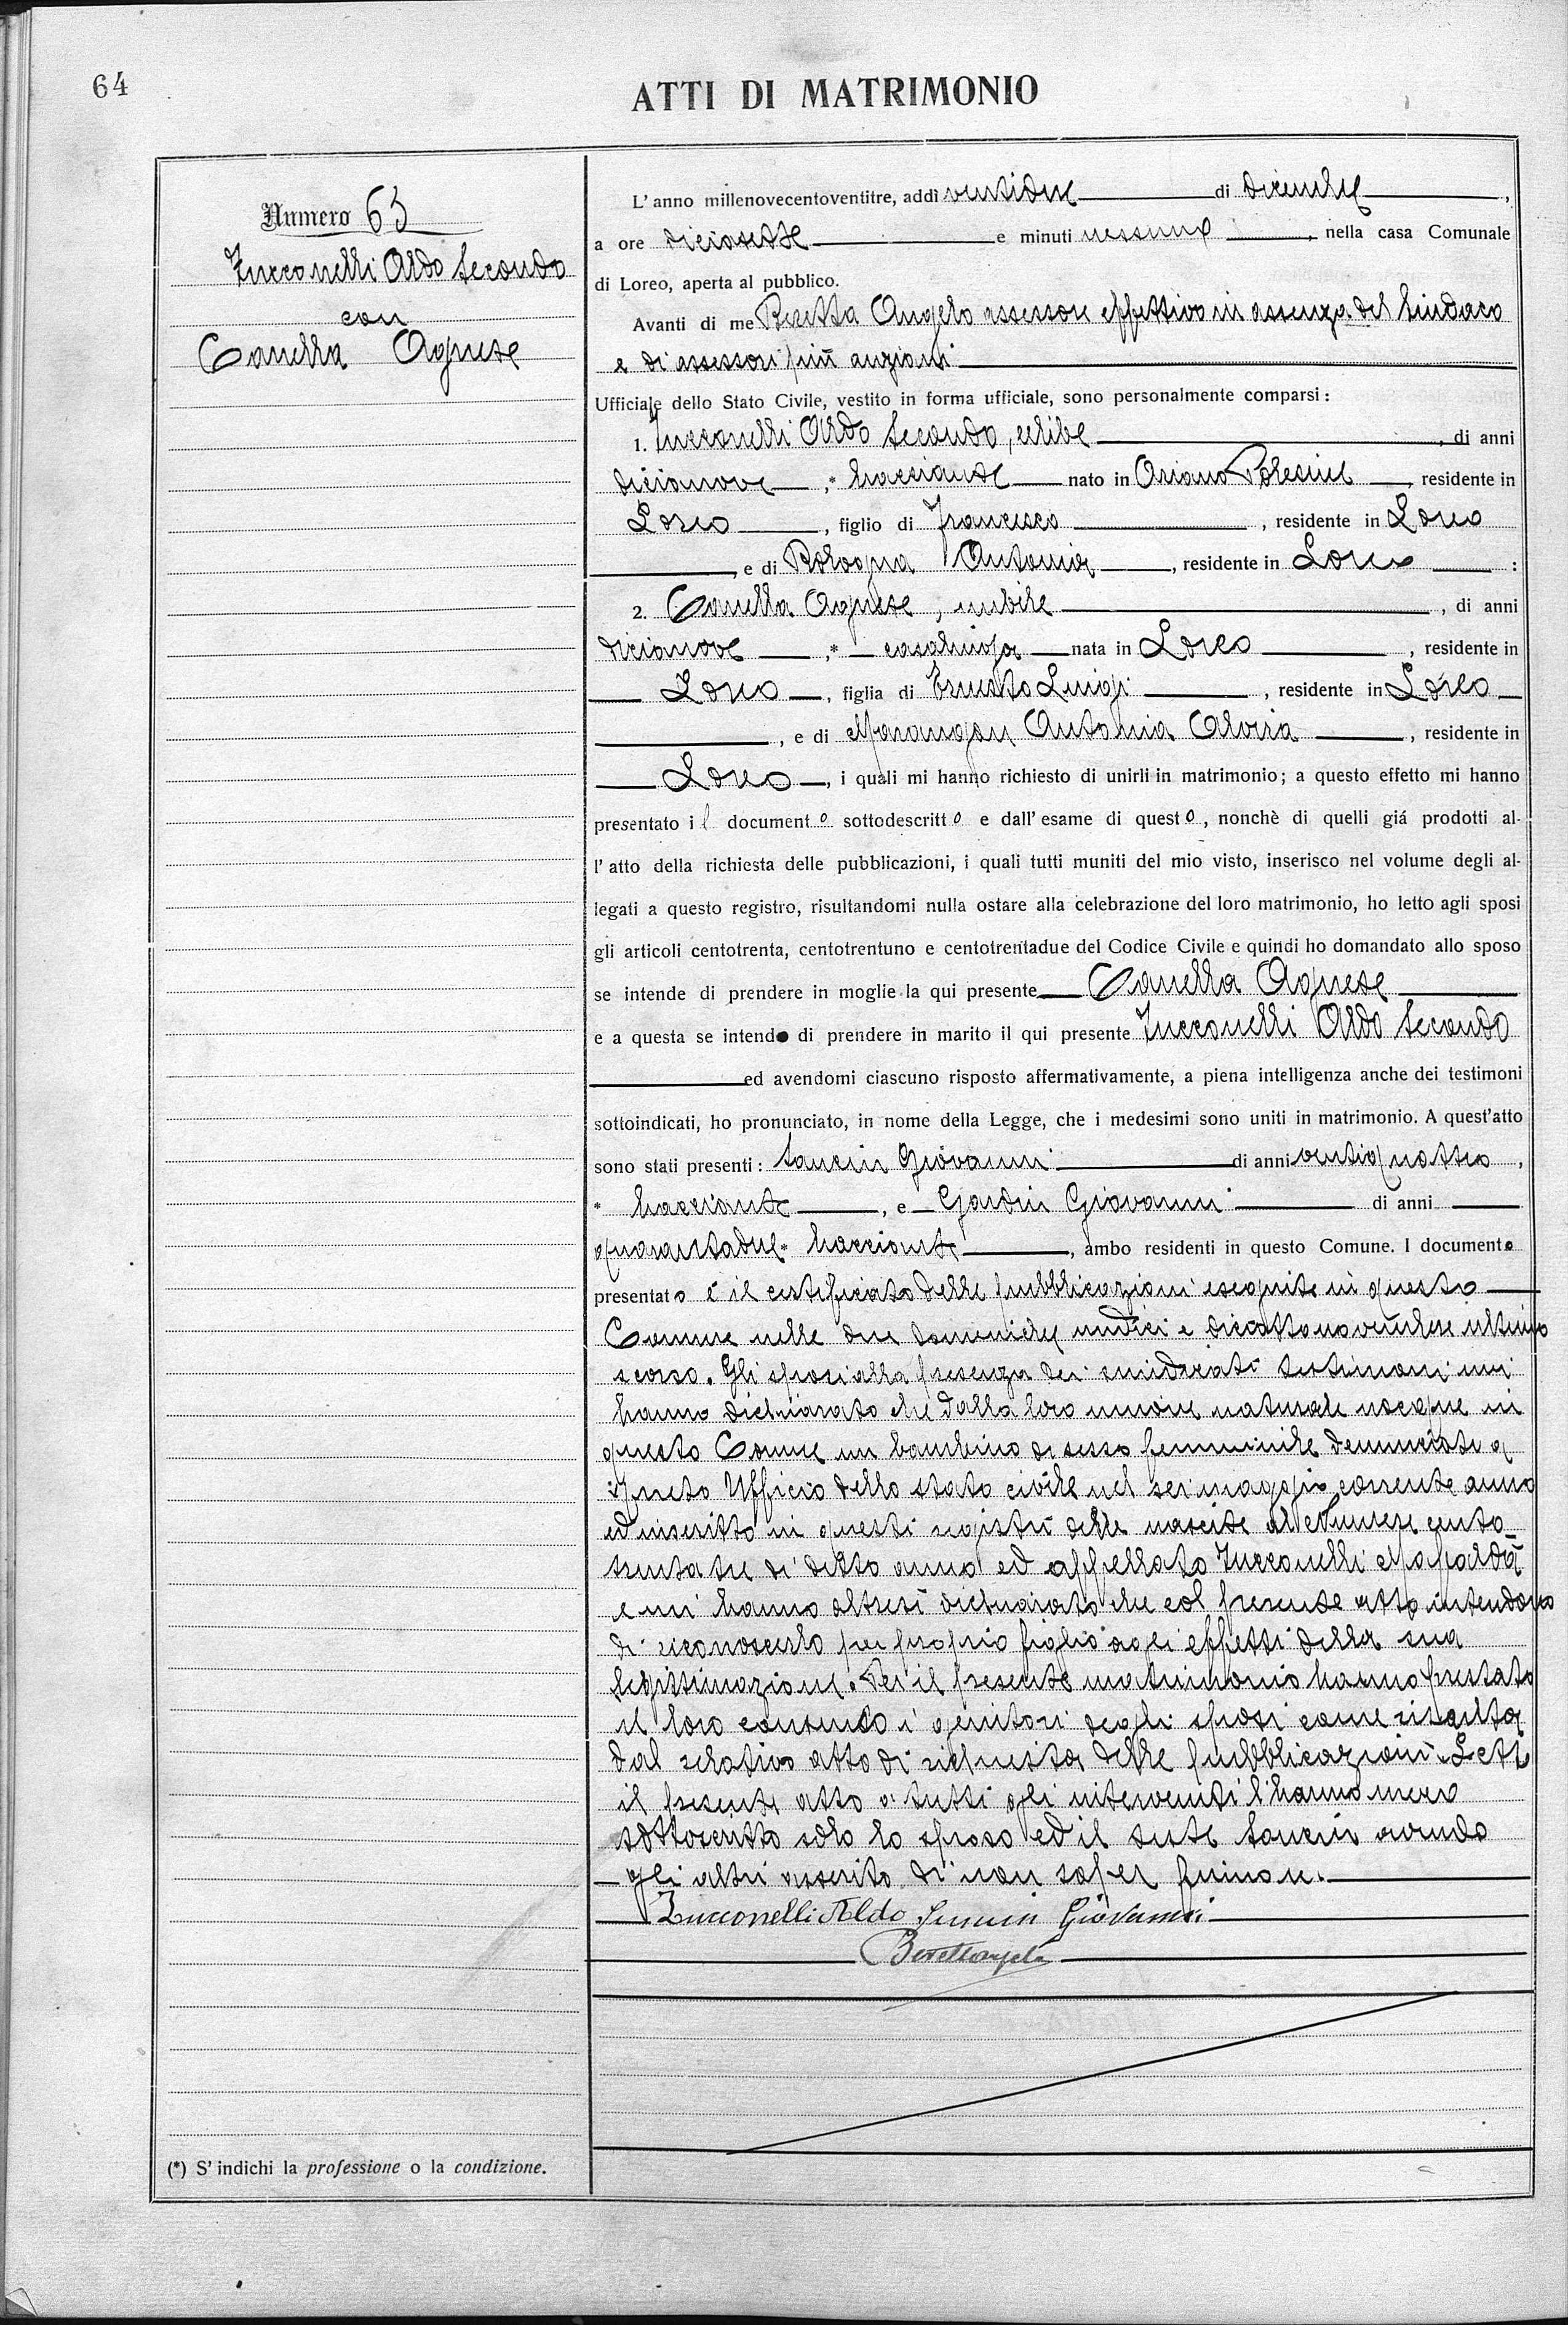 64
ATTI DI MATRIMONIO
Numero 63
Zucconelli Aldo Secondo
con
Canella Agnese
L'anno millenovecentoventitre, addì ventidue di dicembre,
a ore diciasette e minuti nessuno, nella casa Comunale
di Loreo, aperta al pubblico.
Avanti di me Beretta Angelo assessore effettivo in assenza del Sindaco
e di assessori più anziani
Ufficiale dello Stato Civile, vestito in forma ufficiale, sono personalmente comparsi:
1. Zucconelli Aldo Secondo, celibe, di anni
dicianove,* bracciante nato in Ariano Polesine, residente in
Loreo, figlio di Francesco, residente in Loreo
, e di Bologna Antonia, residente in Loreo:
2. Canella Agnese, nubile, di anni
dicianove,* casalinga nata in Loreo, residente in
Loreo, figlia di Ernesto Luigi, residente in Loreo
, e di Marangon Antonia Elvira, residente in
Loreo, i quali mi hanno richiesto di unirli in matrimonio; a questo effetto mi hanno
presentato il documento sottodescritto e dall'esame di questo, nonchè di quelli giá prodotti al-
l'atto della richiesta delle pubblicazioni, i quali tutti muniti del mio visto, inserisco nel volume degli al-
legati a questo registro, risultandomi nulla ostare alla celebrazione del loro matrimonio, ho letto agli sposi
gli articoli centotrenta, centotrentuno e centotrentadue del Codice Civile e quindi ho domandato allo sposo
se intende di prendere in moglie la qui presente Canella Agnese
e a questa se intende di prendere in marito il qui presente Zucconelli Aldo Secondo
ed avendomi ciascuno risposto affermativamente, a piena intelligenza anche dei testimoni
sottoindicati, ho pronunciato, in nome della Legge, che i medesimi sono uniti in matrimonio. A quest'atto
sono stati presenti: Sancin Giovanni di anni ventiquattro,
* bracciante, e Gardin Giovanni di anni
quarantadue * bracciante, ambo residenti in questo Comune. I documento
presentato è il certificato delle pubblicazioni eseguite in questo
Comune nelle due domeniche undici e dieciotto novembre ultimo
scorso. Gli sposi alla presenza dei suindicati testimoni mi
hanno dichiarato che dalla loro unione naturale nacque in
questo Comune un bambino di sesso femminile denunciato a
questo Ufficio dello stato civile nel sei maggio corrente anno
ed inscritto in questi registri delle nascite al Numero cento
trentatre di detto anno ed appellato Zucconelli Mafalda
e mi hanno altresì dichiarato che col presente atto intendono
di riconoscerlo per proprio figlio agli effetti della sua
legittimazione. Per il presente matrimonio hanno prestato
il loro consenso i genitori degli sposi come risulta
dal relativo atto di richiesta delle pubblicazioni. Letto
il presente atto a tutti gli intervenuti l'hanno meco
sottoscritto solo lo sposo ed il teste Sancin avendo
gli altri asserito di non saper firmare.
Zucconelli Aldo Sancin Giovanni
Berettangelo
(*) S'indichi la professione o la condizione.